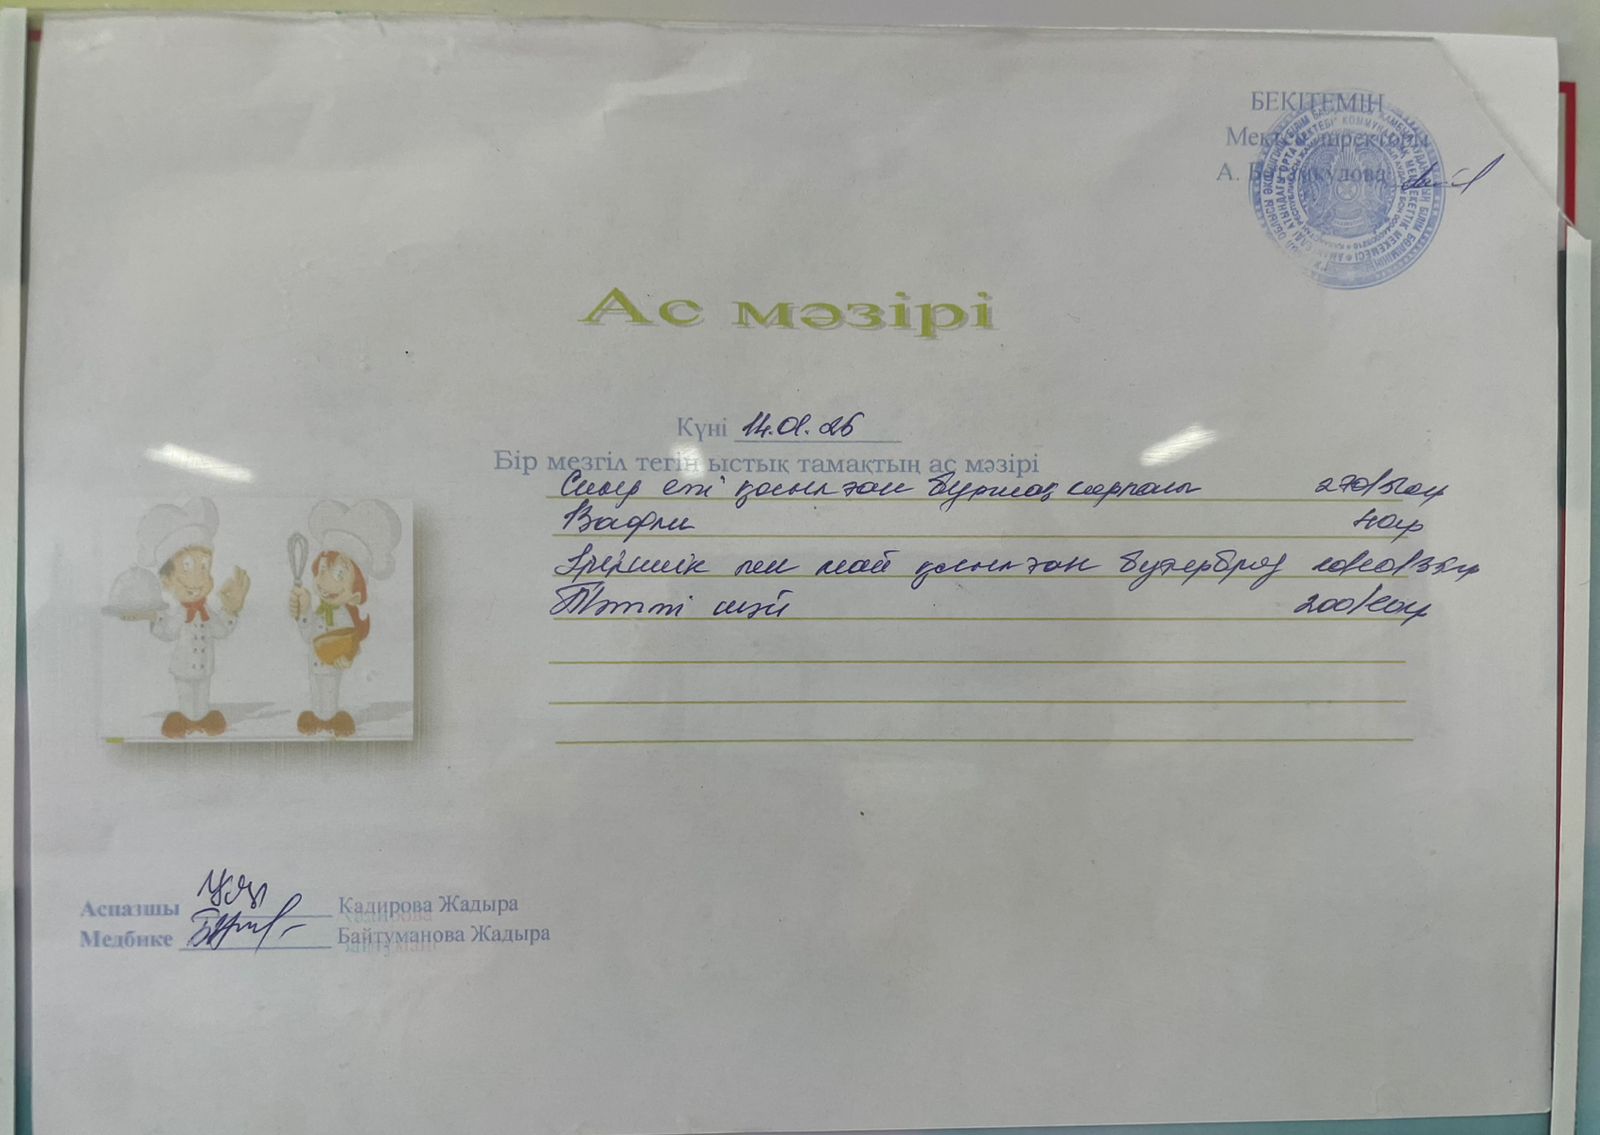 БЕКІТЕМІН
Мектеп директоры
А.
Ас мәзірі
Күні 14.01.26
Бір мезгіл тегін ыстық тамақтың ас мәзірі
Сиыр еті қосылған бұршақ сорпасы 270/51гр
Вафли 40гр
Ірімшік пен май қосылған бутерброд 10/10/35гр
Тәтті шәй 200/10гр
Аспазшы Кадирова Жадыра
Медбике Байтуманова Жадыра